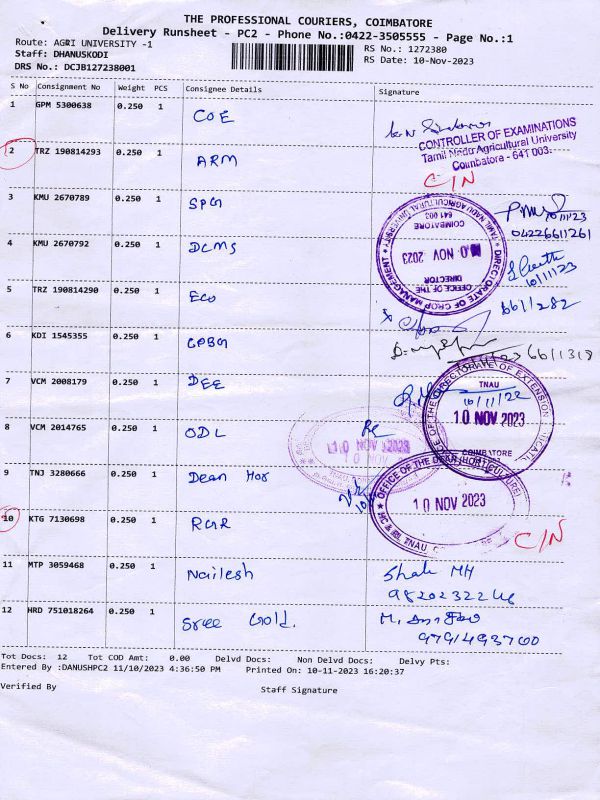 THE PROFESSIONAL COURIERS, COIMBATORE
Delivery Runsheet - PC2 - Phone No.:0422-3505555 - Page No.:1
Route: AGRI UNIVERSITY -1
RS No.: 1272380
Staff: DHANUSKODI
RS Date: 10-Nov-2023
DRS No.: DCJB127238001
S No Consignment No Weight PCS Consignee Details Signature
1 GPM 5300638 0.250 1 COE
CONTROLLER OF EXAMINATIONS
Tamil Nadu Agricultural University
Coimbatore - 641 003.
2 TRZ 190814293 0.250 1 ARM C/N
3 KMU 2670789 0.250 1 SPGI 10/11/23
04226611261
4 KMU 2670792 0.250 1 DCMS
10/11/23
DIRECTORATE OF CROP MANAGEMENT
TAMIL NADU AGRICULTURAL UNIVERSITY
COIMBATORE
641 003
10 NOV 2023
OFFICE OF THE
DIRECTOR
5 TRZ 190814290 0.250 1 ECO 6611282
6 KDI 1545355 0.250 1 CPBG 6611318
7 VCM 2008179 0.250 1 DEE
OFFICE OF THE DIRECTORATE OF EXTENSION
TNAU
10 NOV 2023
COIMBATORE
8 VCM 2014765 0.250 1 ODL
10 NOV 2023
9 TNJ 3280666 0.250 1 Dean Hor
OFFICE OF THE DEAN (HORTICULTURE)
10 NOV 2023
HC & RI, TNAU
10 KTG 7130698 0.250 1 C/N
11 MTP 3059468 0.250 1 Nailesh Shah MH
12 HRD 751018264 0.250 1 Sree Gold.
9791493700
Tot Docs: 12 Tot COD Amt: 0.00 Delvd Docs: Non Delvd Docs: Delvy Pts:
Entered By :DANUSHPC2 11/10/2023 4:36:50 PM Printed On: 10-11-2023 16:20:37
Verified By Staff Signature